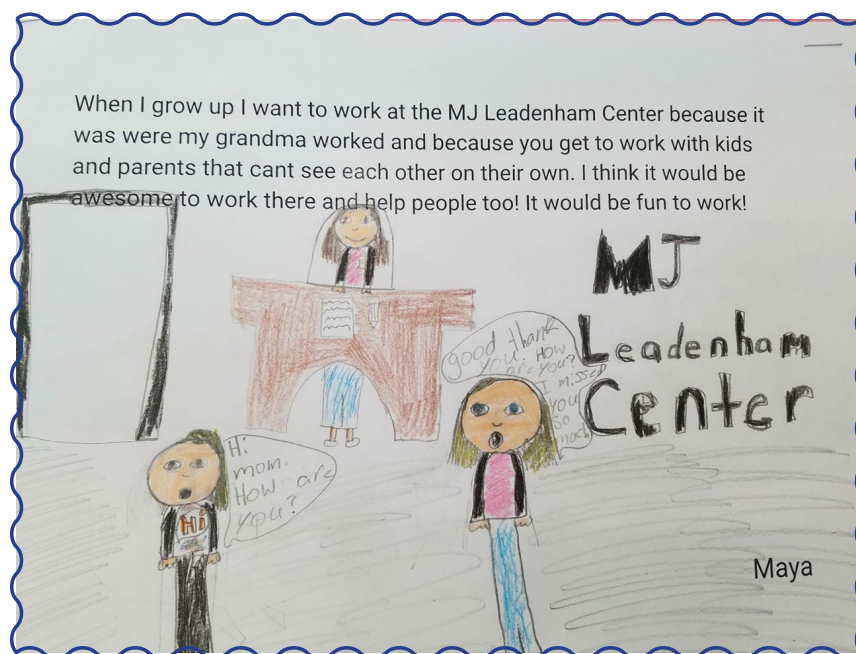 When I grow up I want to work at the MJ Leadenham Center because it
was were my grandma worked and because you get to work with kids
and parents that cant see each other on their own. I think it would be
awesome to work there and help people too! It would be fun to work!
MJ
Leadenham
Center
good thank
you. How
are you?
I missed
you
so
much
Hi
mom.
How are
you?
Hi
Maya